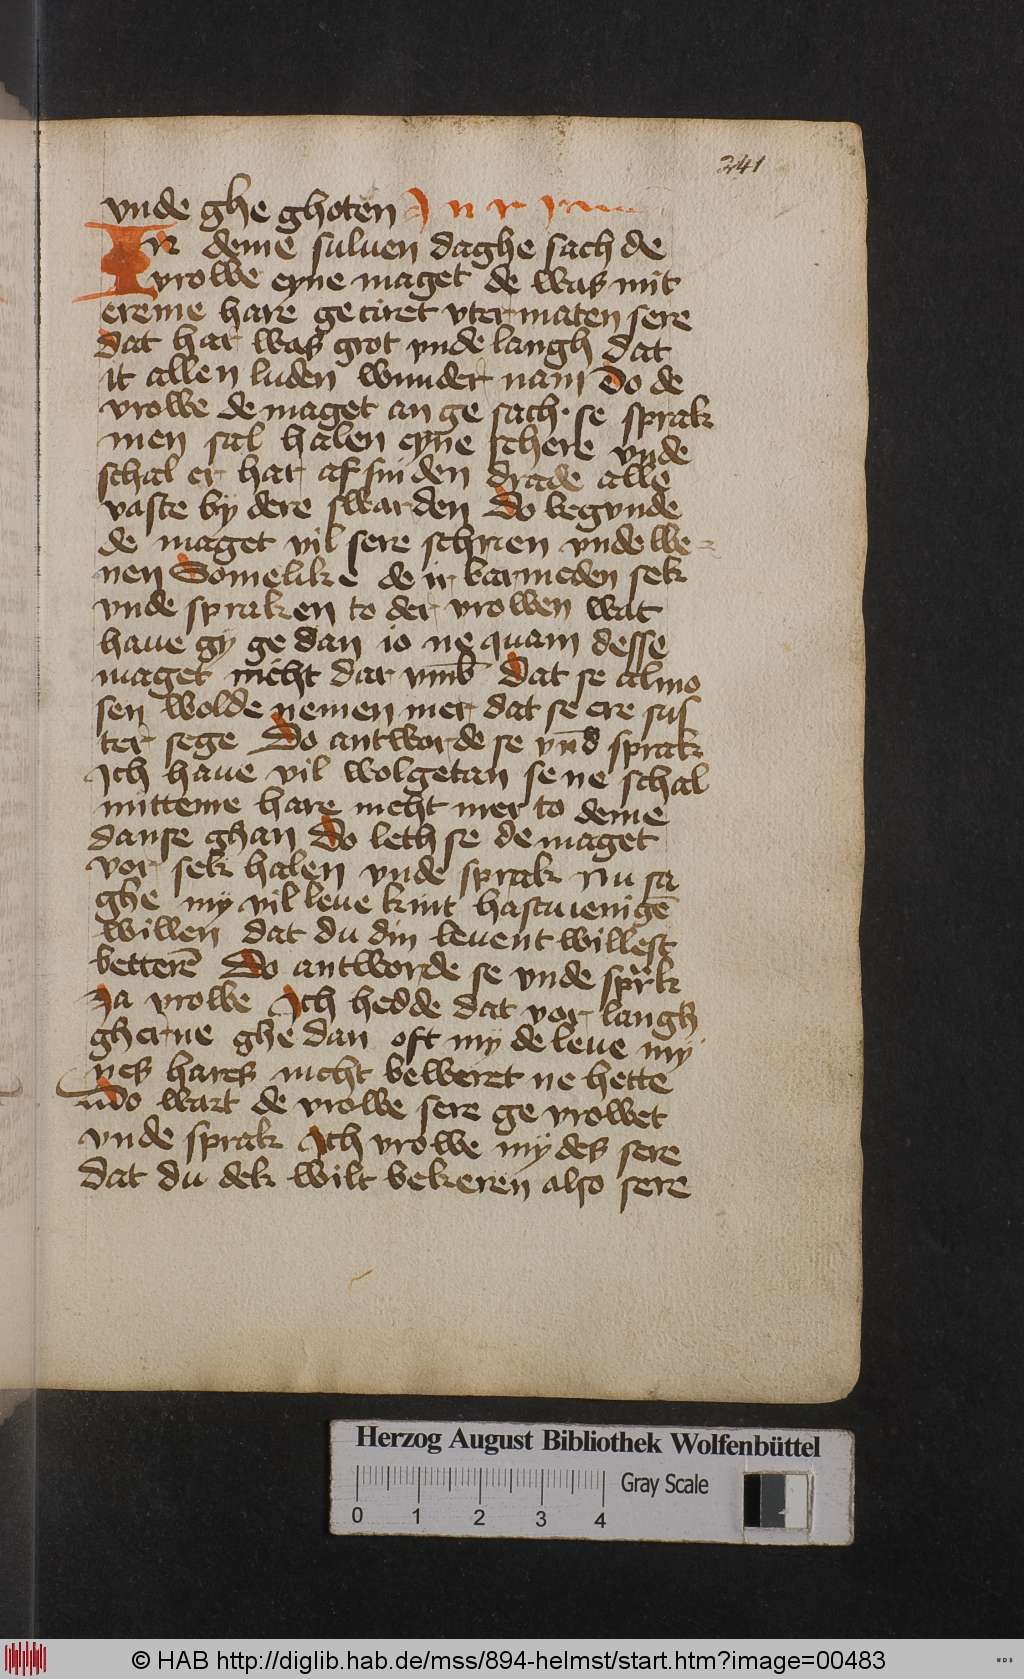 241
vnde ghe ghoten
In deme suluen daghe sach de
vrowe eyne maget de was mit
ereme hare geciret vter maten sere
dat har was grot vnde langh dat
it allen luden wunder nam Do de
vrowe de maget an ge sach · se sprak
men sal halen eyne schere vnde
schal er har af sniden drade alle
vaste by dere swarden Do begunde
de maget vil sere schrien vnde we
nen Somelike de ir barmeden sek
vnde spraken to der vrowen wat
haue gy ge dan io ne quam desse
maget nicht dar vmb Dat se almo
sen wolde nemen mer dat se ere sus
ter sege Do antworde se vnd sprak
Ich haue vil wolgetan se ne schal
mitteme hare nicht mer to deme
danse ghan Do leth se de maget
vor sek halen vnde sprak Nu sa
ghe my vil leue kint hastu ienigē
willen dat du din leuent willest
betterē Do antworde se vnde sprak
Ja vrowe Ich hedde dat vor langh
gherne ghe dan oft my de leue my
nes hares nicht beweret ne hette
Do wart de vrowe sere ge vrowet
vnde sprak Ich vrowe my des sere
dat du dek wilt bekeren also sere
Herzog August Bibliothek Wolfenbüttel
Gray Scale
0 1 2 3 4
© HAB http://diglib.hab.de/mss/894-helmst/start.htm?image=00483